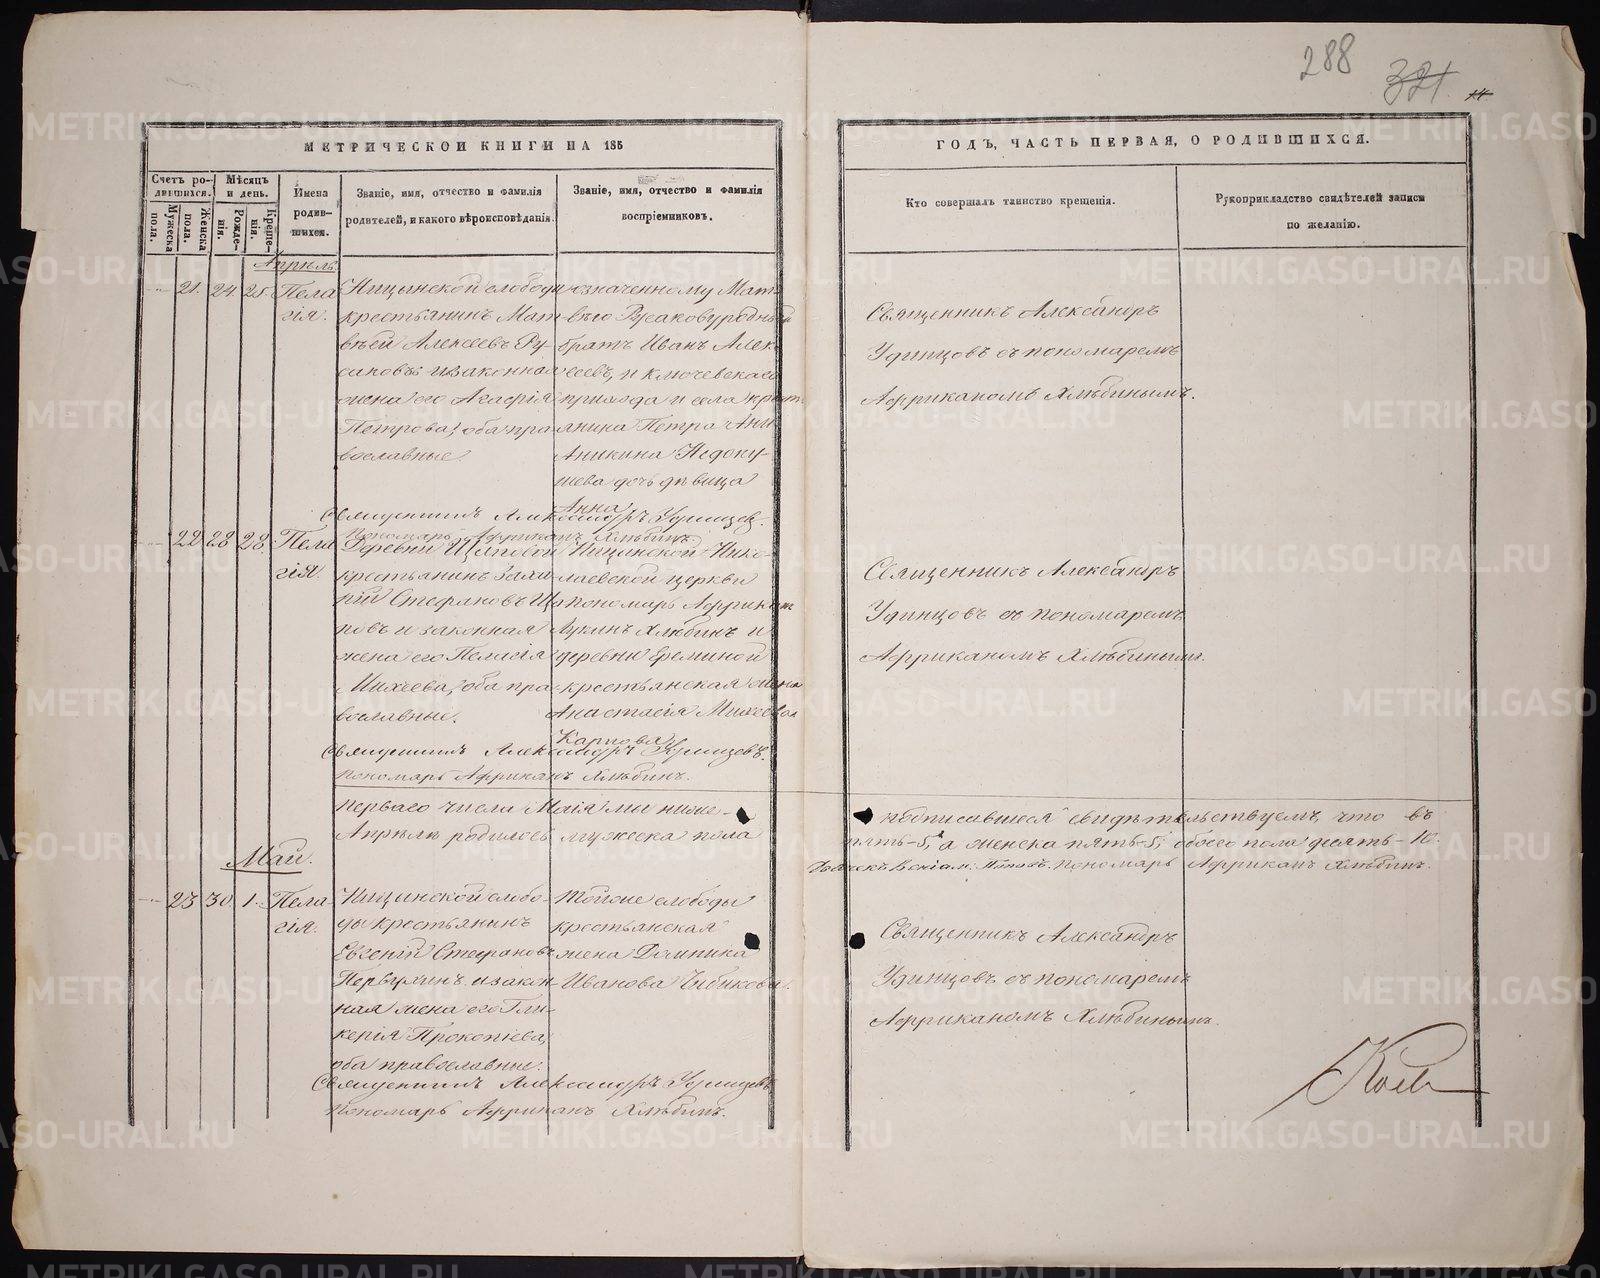 288
321
14
МЕТРИЧЕСКОЙ КНИГИ НА 185
ГОДЪ, ЧАСТЬ ПЕРВАЯ, О РОДИВШИХСЯ.
Счетъ ро-
дившихся.
Мужеска
пола.
Женска
пола.
Мѣсяцъ
и день.
Рожде-
нія.
Креще-
нія.
Имена
родив-
шихся.
Званіе, имя, отчество и фамилія
родителей, и какого вѣроисповѣданія.
Званіе, имя, отчество и фамилія
воспріемниковъ.
Кто совершалъ таинство крещенія.
Рукоприкладство свидѣтелей записи
по желанію.
Апрѣль.
21. 24. 25. Пела
гія.
Ницынской слободы
крестьянинъ Мат-
вѣй Алексѣевъ Ру-
саковъ и законная
жена его Агафія
Петрова; оба пра-
вославные
означенному Мат
вѣю Русакову родный
братъ Иванъ Алек-
сѣевъ, и ключевскаго
прихода и села крест
янина Петра
Аникина Недоку-
шева дочь дѣвица
Анна
Священникъ Александръ
Удинцовъ съ пономаремъ
Африканомъ Хлѣбинымъ.
Священникъ Александръ Удинцевъ.
Пономарь Африканъ Хлѣбинъ.
22 28 28. Пела
гія.
Деревни
крестьянинъ Заха
рій Стефановъ
повъ и законная
жена его Пелагія
Михеева; оба пра-
вославные.
Ницынской Нико-
лаевской церкви
пономарь Африкан
Лукинъ Хлѣбинъ и
деревни Ереминой
крестьянская жена
Анастасія Михеева
Карпова
Священникъ Александръ
Удинцовъ съ пономаремъ
Африканомъ Хлѣбинымъ.
Священникъ Александръ Удинцевъ.
Пономарь Африканъ Хлѣбинъ.
перваго числа Маія мы ниже-
подписавшіеся свидѣтельствуемъ, что въ
Апрѣлѣ родилось мужеска пола
пять-5, а женска пять-5, обоего пола десять-10.
Пономарь Африканъ Хлѣбинъ.
Май.
23 30. 1. Пела-
гія.
Ницынской слобо-
ды крестьянинъ
Евгеній Стефановъ
Первухинъ и закон-
ная жена его Гли-
керія Прокопьева,
оба православные.
Тойже слободы
крестьянская
жена Домника
Иванова Чибикова.
Священникъ Александръ
Удинцовъ съ пономаремъ
Африканомъ Хлѣбинымъ.
Священникъ Александръ Удинцевъ
Пономарь Африканъ Хлѣбинъ.
METRIKI.GASO-URAL.RU